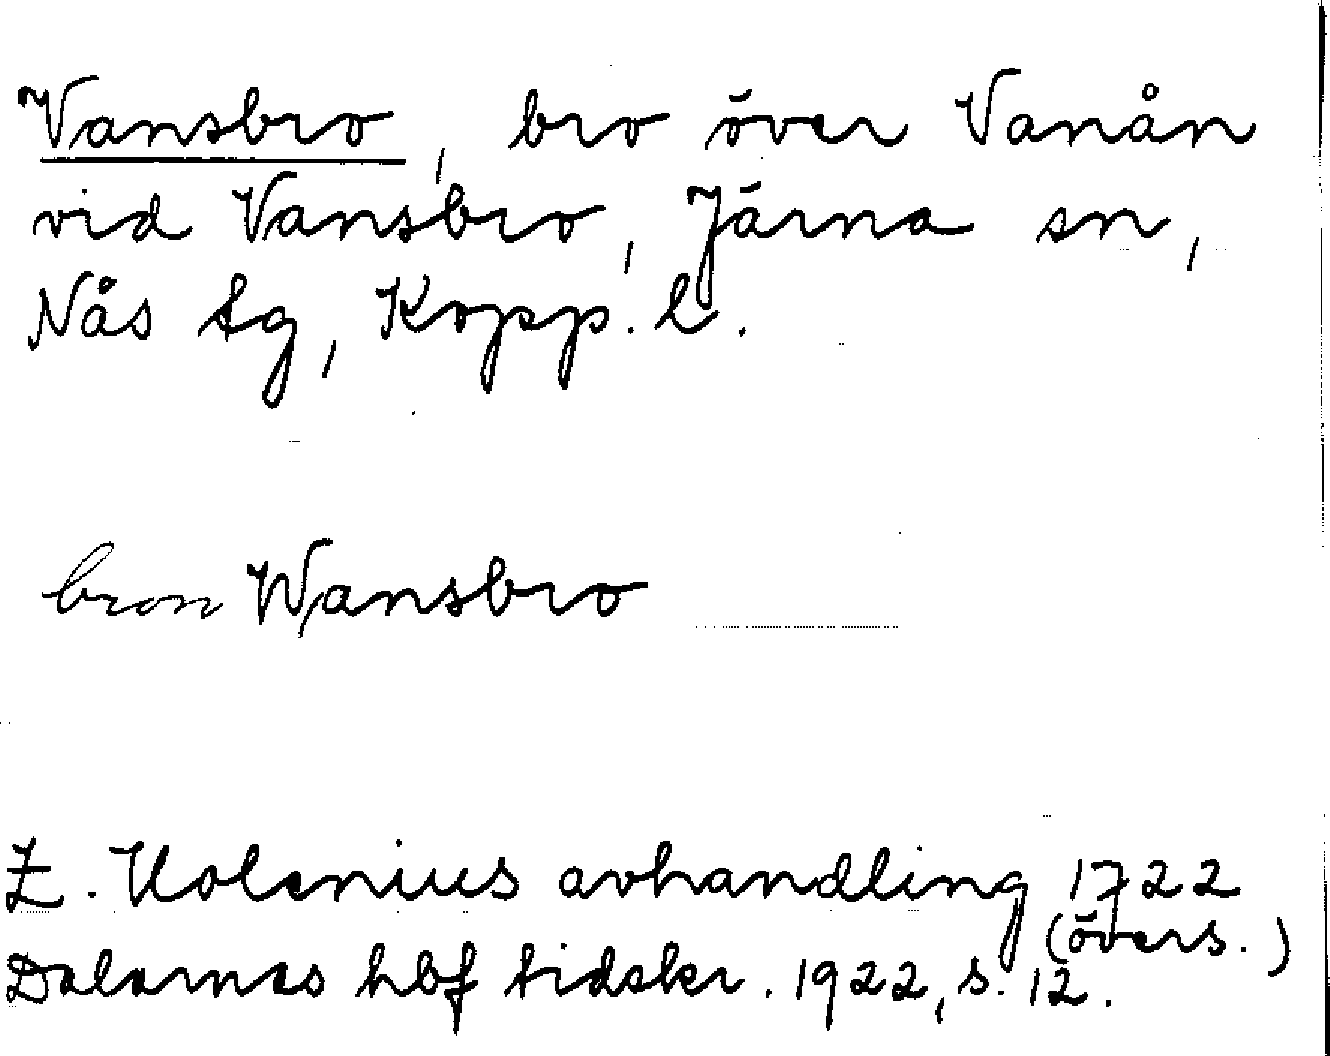 Vansbro, bro över Vanån
vid Vansbro, Järna sn,
Nås tg, Kopp. l.
bron Wansbro
Z. Holenius avhandling 1722
(övers.)
Dalarnas hbf tidskr. 1922, s. 12.